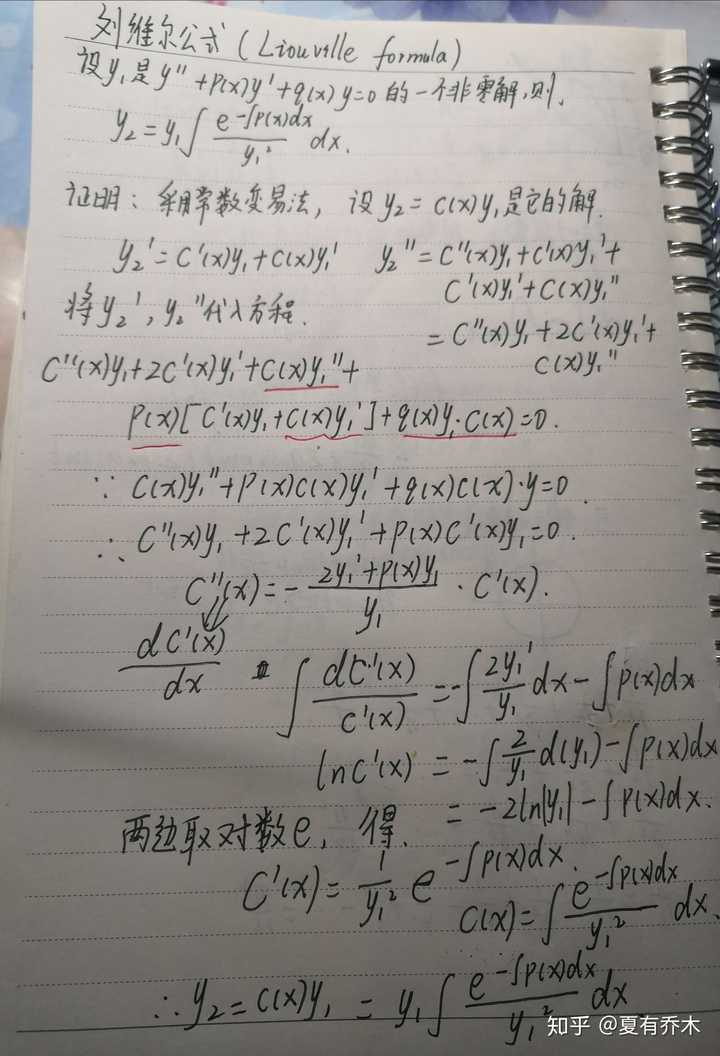 刘维尔公式 (Liouville formula)
设y₁是 y''+p(x)y'+q(x)y=0 的一个非零解,则,
y₂=y₁∫ e^(-∫p(x)dx)/y₁² dx.
证明: 采用常数变易法, 设 y₂=C(x)y₁是它的解.
y₂'=C'(x)y₁+C(x)y₁' y₂''=C''(x)y₁+C'(x)y₁'+
C'(x)y₁'+C(x)y₁''
将y₂',y₂''代入方程.
=C''(x)y₁+2C'(x)y₁'+
C(x)y₁''
C''(x)y₁+2C'(x)y₁'+C(x)y₁''+
p(x)[C'(x)y₁+C(x)y₁']+q(x)y₁·C(x)=0.
∵ C(x)y₁''+p(x)C(x)y₁'+q(x)C(x)·y=0.
∴ C''(x)y₁+2C'(x)y₁'+p(x)C'(x)y₁=0.
C''(x)=-(2y₁'+p(x)y₁)/y₁ · C'(x).
dC'(x)/dx
∫ dC'(x)/C'(x) =-∫ 2y₁'/y₁ dx-∫p(x)dx
lnC'(x) =-∫ 2/y₁ d(y₁)-∫p(x)dx
=-2ln|y₁|-∫p(x)dx.
两边取对数e, 得.
C'(x)= 1/y₁² e^(-∫p(x)dx).
C(x)=∫ e^(-∫p(x)dx)/y₁² dx.
∴ y₂=C(x)y₁ = y₁∫ e^(-∫p(x)dx)/y₁² dx
知乎 @夏有乔木